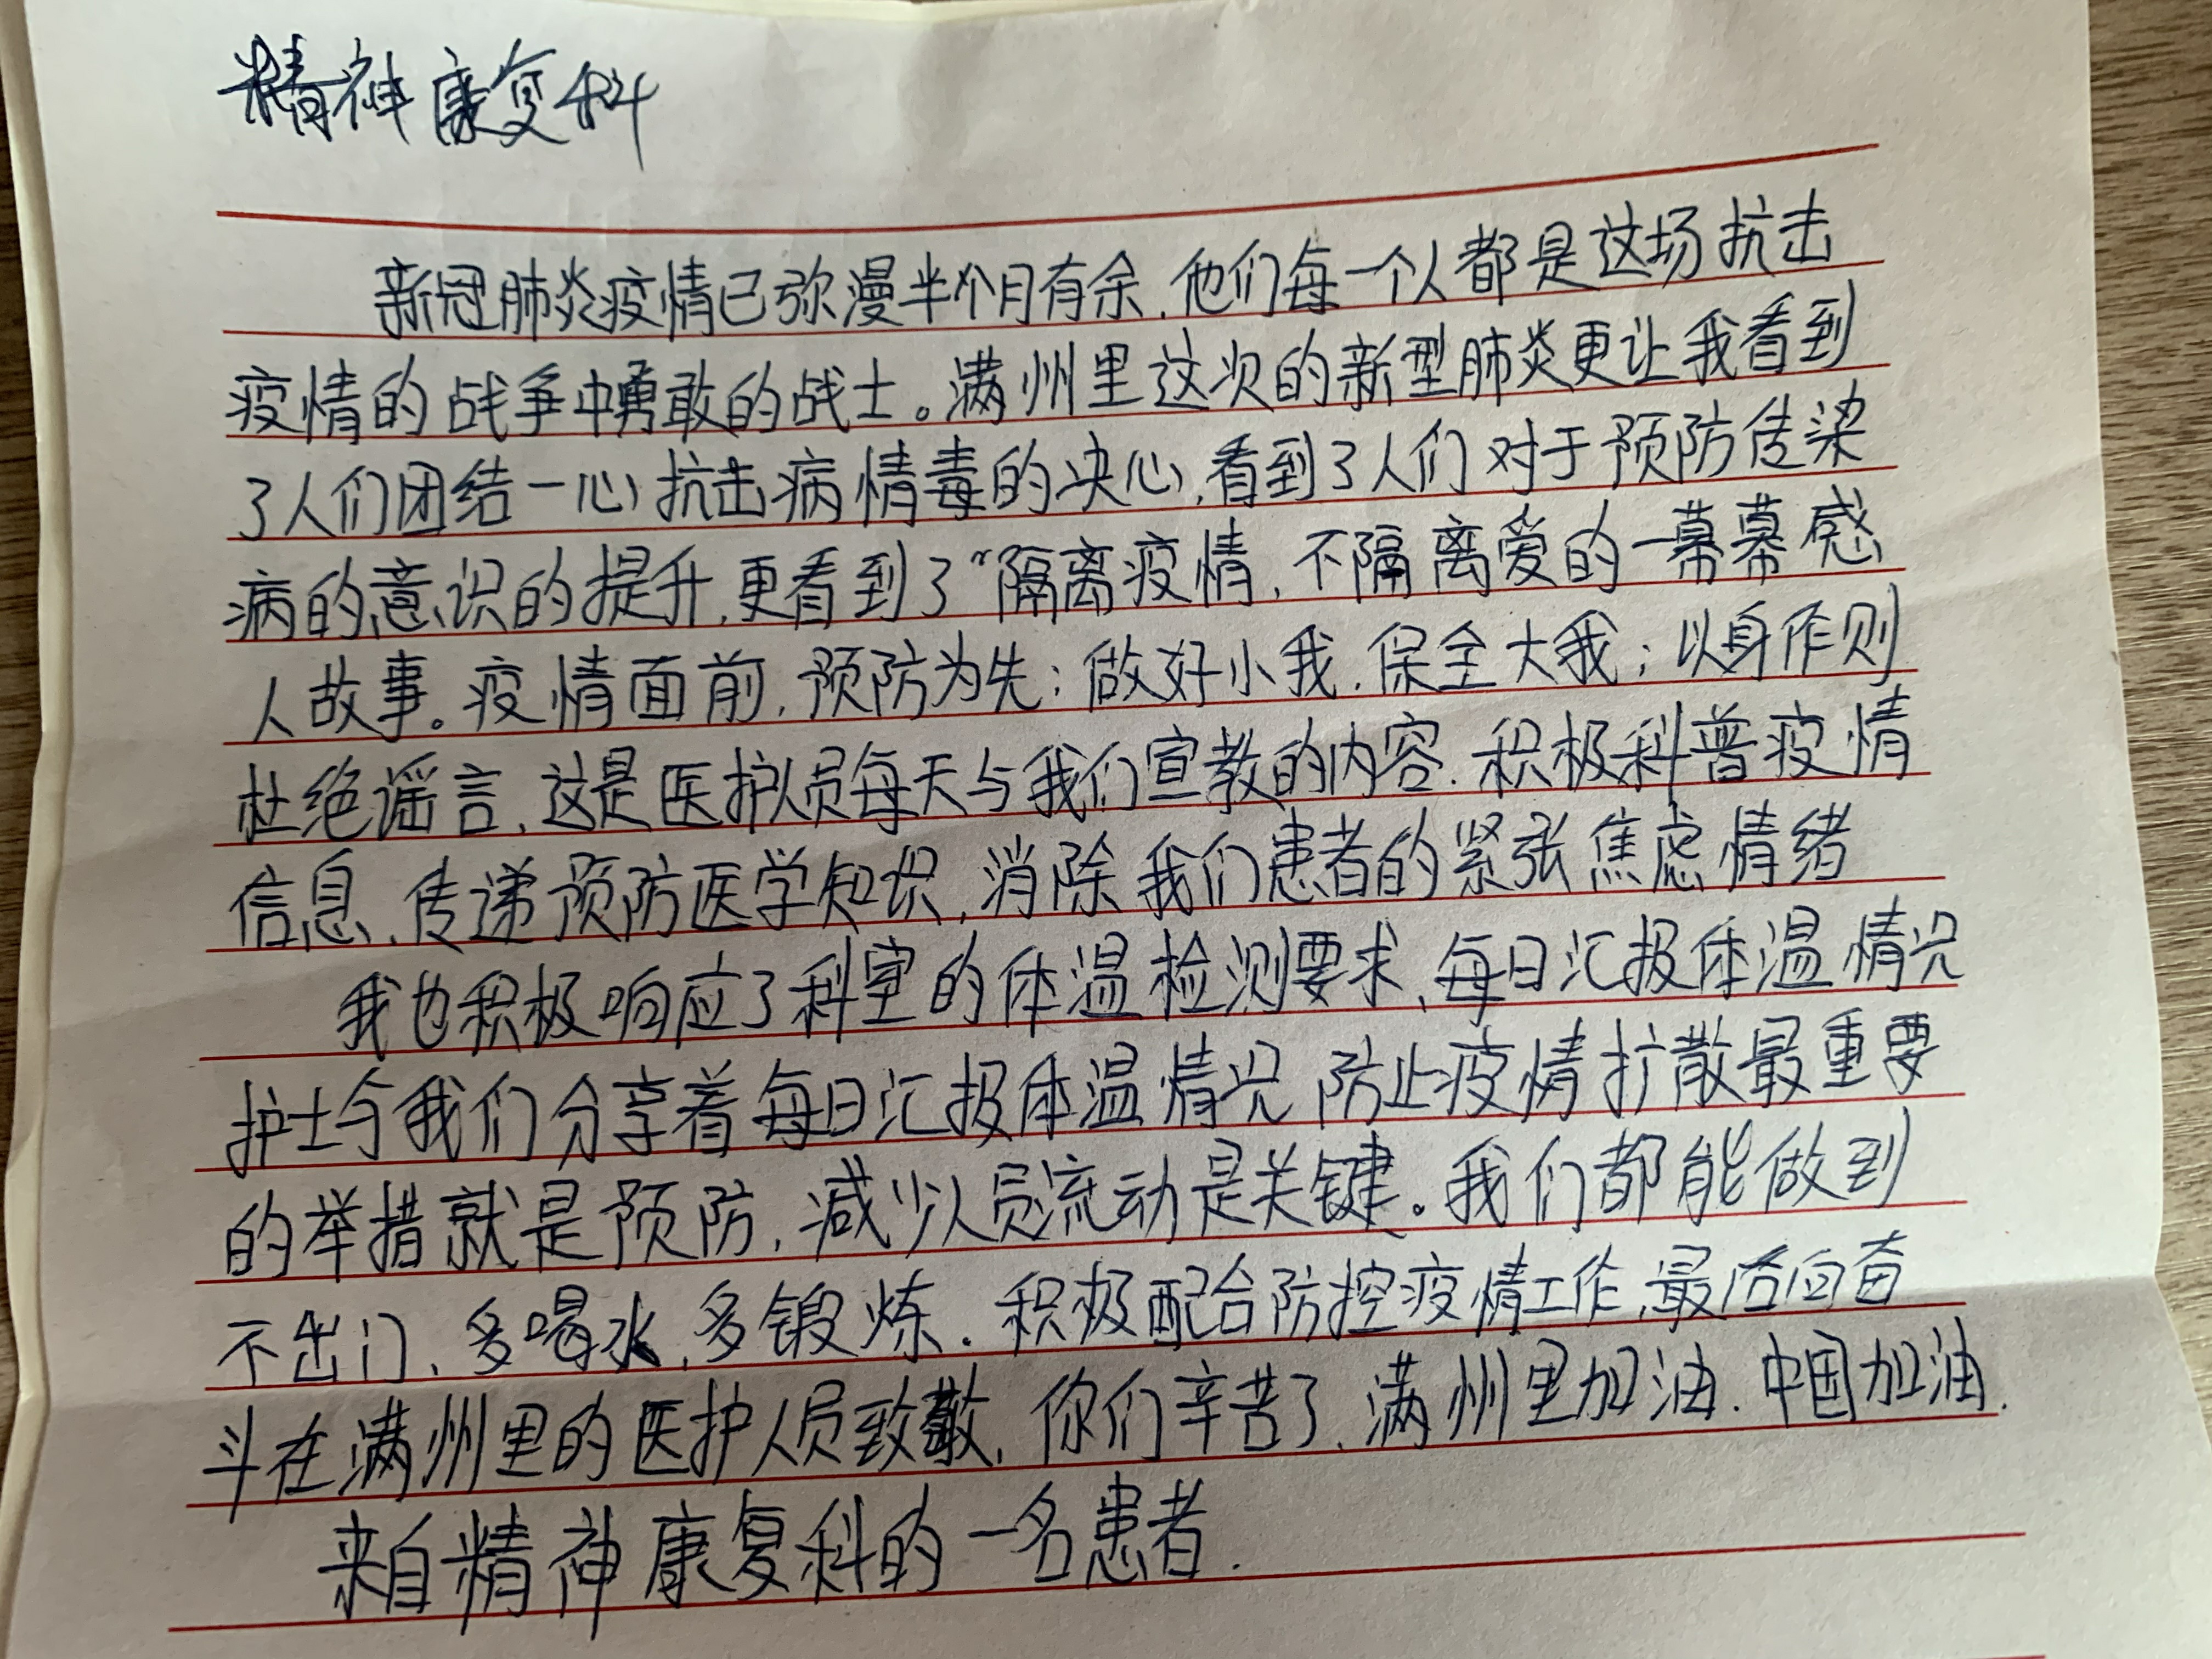 精神康复科
新冠肺炎疫情已弥漫半个月有余,他们每一个人都是这场抗击
疫情的战争中勇敢的战士。满州里这次的新型肺炎更让我看到
了人们团结一心抗击病情毒的决心,看到了人们对于预防传染
病的意识的提升,更看到了“隔离疫情,不隔离爱的一幕幕感
人故事。疫情面前,预防为先;做好小我,保全大我;以身作则
杜绝谣言,这是医护人员每天与我们宣教的内容.积极科普疫情
信息、传递预防医学知识,消除我们患者的紧张焦虑情绪
我也积极响应了科室的体温检测要求,每日汇报体温情况
护士与我们分享着每日汇报体温情况 防止疫情扩散最重要
的举措就是预防,减少人员流动是关键。我们都能做到
不出门、多喝水,多锻炼.积极配合防控疫情工作,最后向奋
斗在满州里的医护人员致敬,你们辛苦了,满州里加油.中国加油.
来自精神康复科的一名患者.